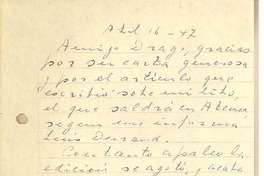 Abril 16-47
Amigo Drago, gracias
por su carta generosa
y por el artículo que
escribió sobre mi libro,
el que saldrá en Atenea
según me informa
Luis Durand.
edición se agotó, y